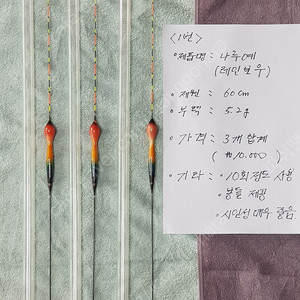 <1번>
• 제품명 : 나루예
(레인보우)
• 제원 : 60cm
• 부력 : 5.2g
• 가격 : 3개 합계
(₩10,000)
• 기타 : • 10회 정도 사용
• 봉돌 제외
• 시인성 매우 좋음.